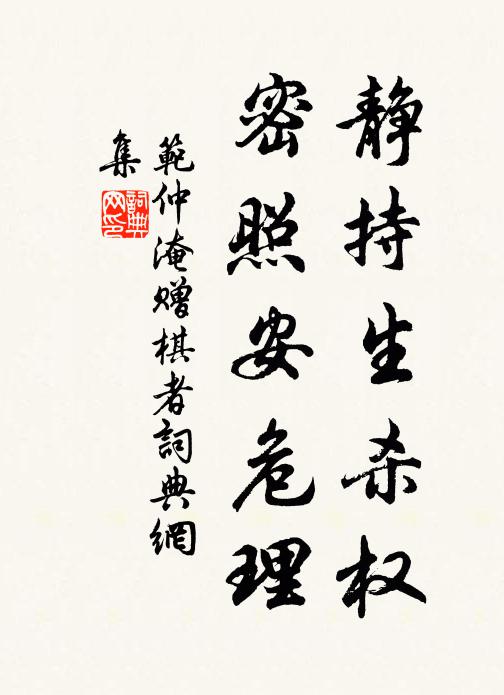 静持生杀权
密照安危理
範仲淹赠棋者詞典網
集
詞典
网印